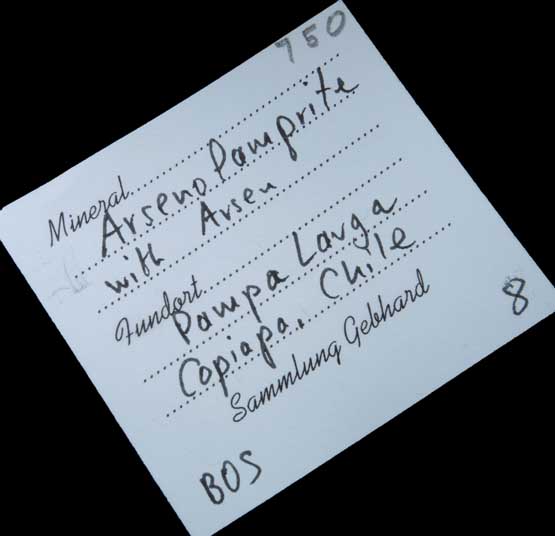 750
Mineral
ArsenoLamprite
with Arsen
Fundort
Pampa Larga
Copiapa. Chile
Sammlung Gebhard
8
BOS